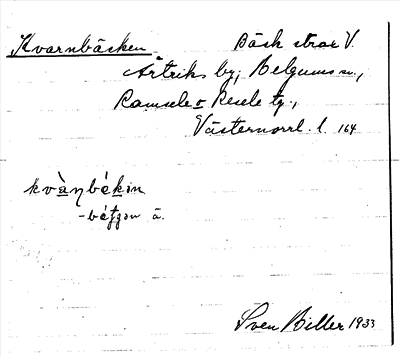 Kvarnbäcken Bäck strax V.
Ärtriks by, Helgums sn.,
Ramsele o Resele tg.,
Västernorrl. l. 164
kvànbákin
-báṭʒon ä.
Sven Biller 1933